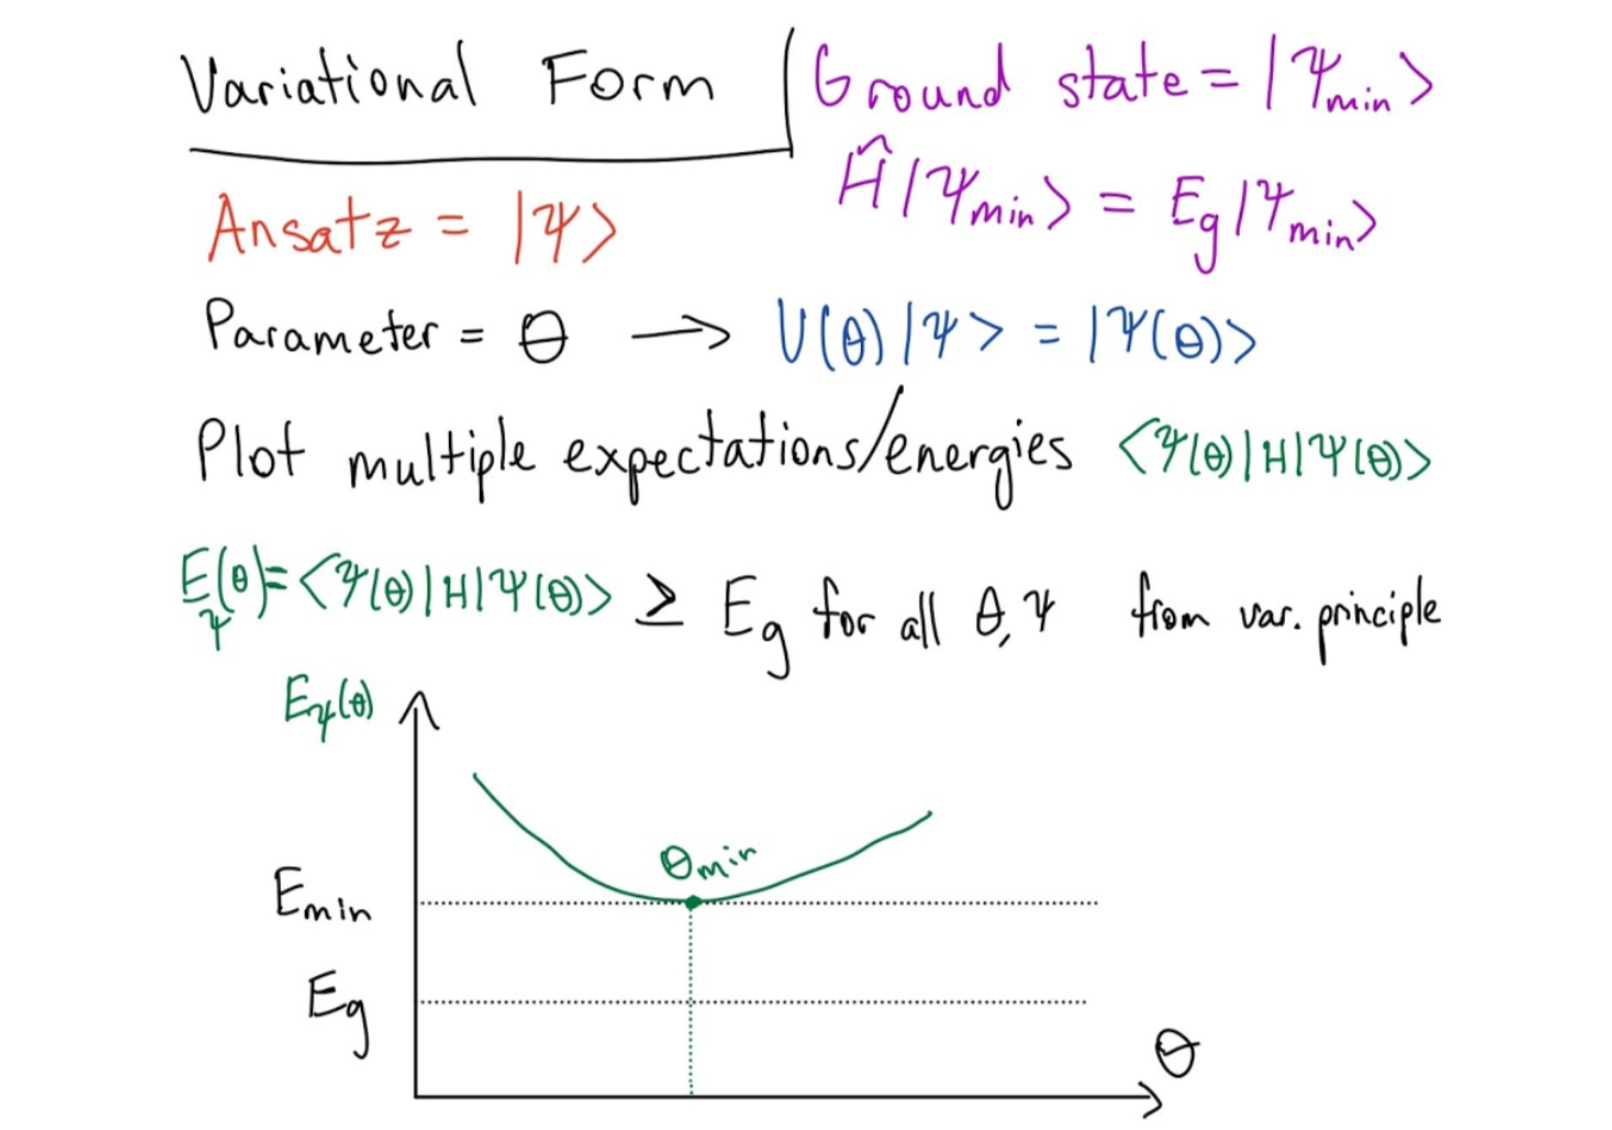 Variational Form
Ground state = |Ψmin>
Ĥ|Ψmin> = Eg|Ψmin>
Ansatz = |Ψ>
Parameter = θ → U(θ)|Ψ> = |Ψ(θ)>
Plot multiple expectations/energies <Ψ(θ)|H|Ψ(θ)>
EΨ(θ)=<Ψ(θ)|H|Ψ(θ)> ≥ Eg for all θ,Ψ from var. principle
EΨ(θ)
θmin
Emin
Eg
θ